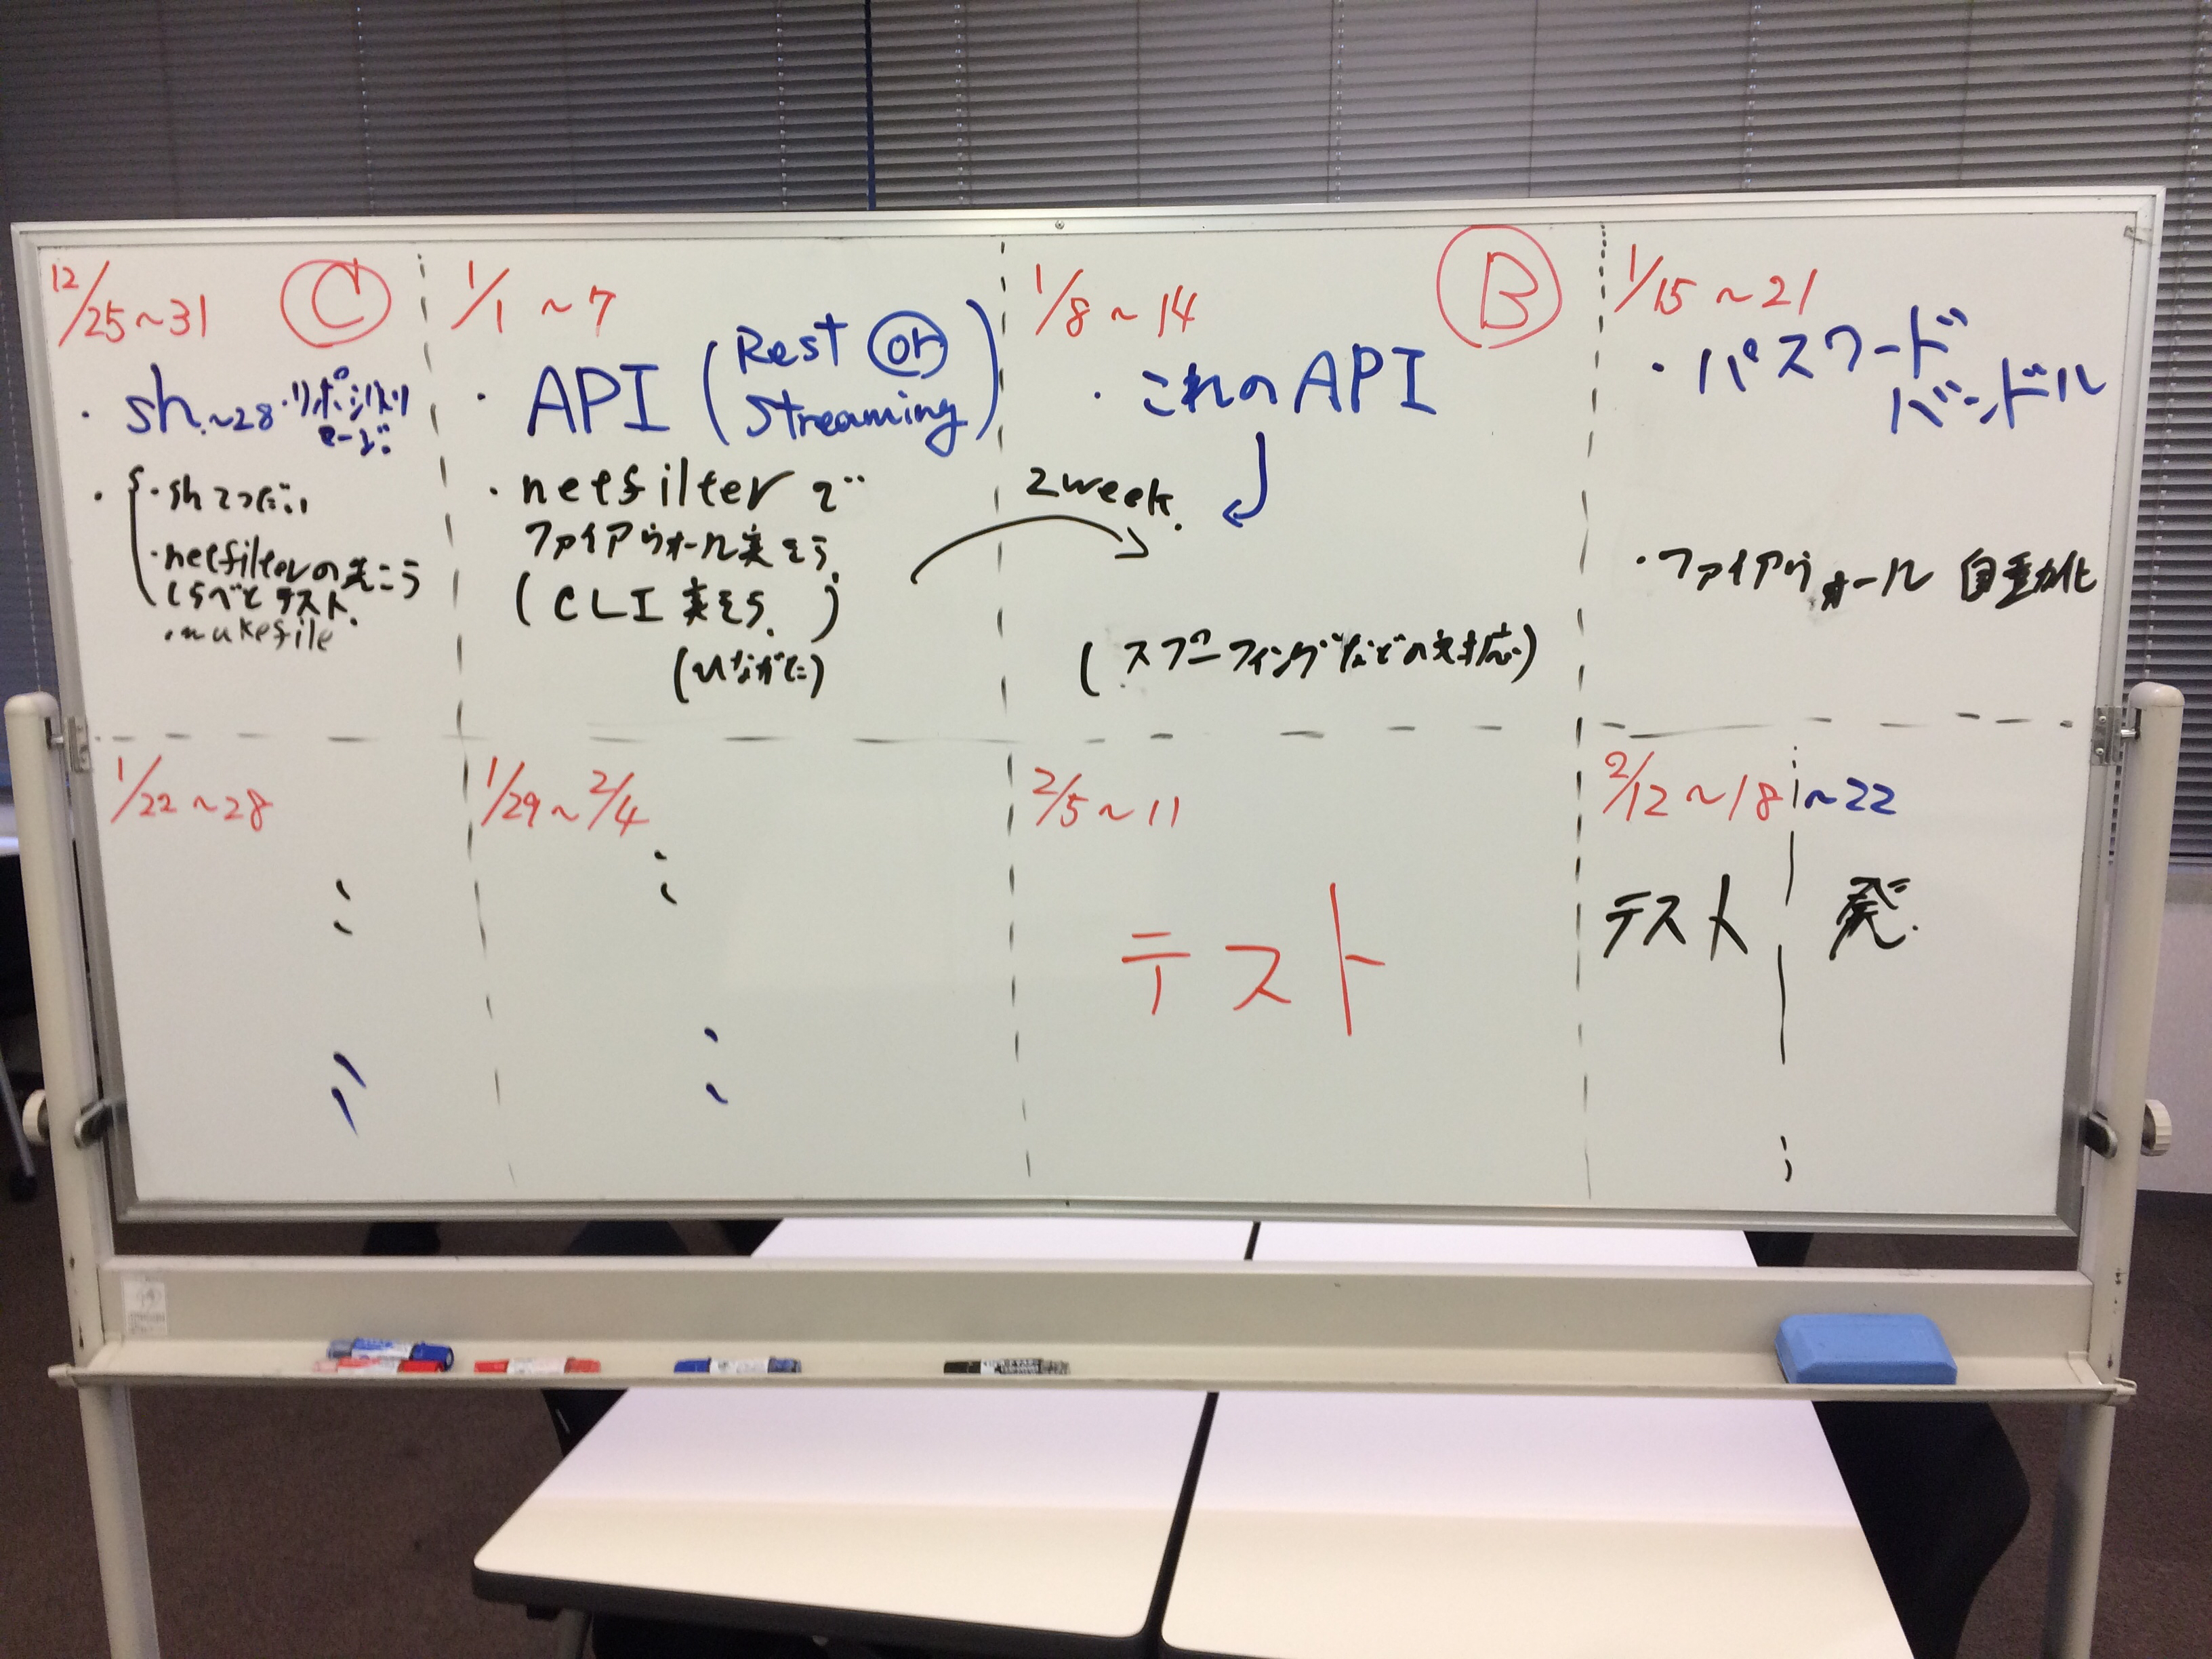 12/25~31 C
・sh ~28・リポジトリ
マージ
・sh てつだい
・netfilterの
くらべと テスト.
・makefile
1/1 ~7
・API (Rest or
Streaming)
・netfilter で
ファイアウォール実そう
(CLI 実そう.)
2week.
1/8~14 B
・これのAPI
(スプーフィングなどの対応)
1/15~21
・パスワード
バンドル
・ファイアウォール 自動化
1/22~28
1/29~2/4
2/5~11
テスト
2/12~18 ~22
テスト 発.